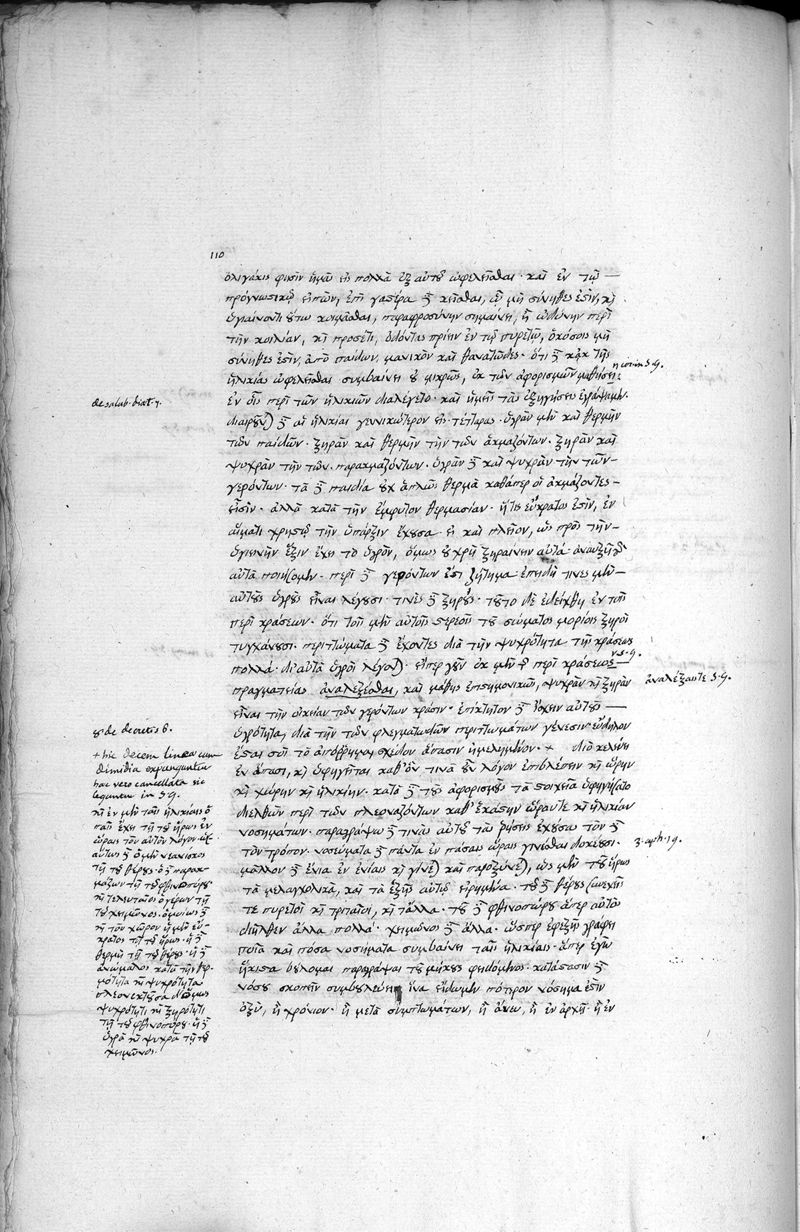 110
ὀλιγάκις φησὶν ἡμᾶς εἰς πολλὰ ἐξ αὐτοῦ ὠφελεῖσθαι· καὶ ἐν τῷ
προγνωστικῷ εἰπὼν, ἐπὶ γαστέρα δὲ κεῖσθαι, ᾧ μὴ σύνηθές ἐστιν, καὶ
ὑγιαίνοντι οὕτω κοιμᾶσθαι, παραφροσύνην σημαίνει, ἢ ὀδύνην περὶ
τὴν κοιλίαν, καὶ προσέτι, ὀδόντας πρίειν ἐν τῷ πυρετῷ, ὁκόσοις μὴ
σύνηθές ἐστιν, ἀπὸ παίδων, μανικὸν καὶ θανατῶδες· ὅτι δὲ κἀκ τῆς
ἡλικίας ὠφελεῖσθαι συμβαίνει οὐ μικρῶς, ἐκ τῶν ἀφορισμῶν
ἐν οἷς περὶ τῶν ἡλικιῶν διαλέγεται· καὶ ἡμεῖς τὰς ἐξηγήσεις ἐγράψαμεν
de salub. diat. 7.
διαιροῦνται δὲ αἱ ἡλικίαι γενικώτερον εἰς τέτταρας· ὑγρὰν μὲν καὶ θερμὴν
τῶν παιδίων· ξηρὰν καὶ θερμὴν τὴν τῶν ἀκμαζόντων· ξηρὰν καὶ
ψυχρὰν τὴν τῶν παρακμαζόντων· ὑγρὰν δὲ καὶ ψυχρὰν τὴν τῶν
γερόντων· τὰ δὲ παιδία οὐχ ἁπλῶς θερμὰ καθάπερ οἱ ἀκμάζοντες
εἰσὶν· ἀλλὰ κατὰ τὴν ἔμφυτον θερμασίαν· ἥτις εὔκρατός ἐστιν, ἐν
αἵματι χρηστῷ τὴν ὕπαρξιν ἔχουσα· εἰ καὶ πλεῖον, ὡς πρὸς τὴν
ὑγιεινὴν ἕξιν ἔχει τὸ ὑγρὸν, ὅμως οὐ χρὴ ξηραίνειν αὐτά·
αὐτὰ ποιήσομεν· περὶ δὲ γερόντων ἐστὶ ζήτημα· ἐπειδὴ τινὲς μὲν
αὐτοὺς ὑγροὺς εἶναι λέγουσι· τινὲς δὲ ξηρούς· τοῦτο δὲ ἐδείχθη ἐν τοῖς
περὶ κράσεων· ὅτι τοῖς μὲν αὐτοῖς στερεοῖς τοῦ σώματος μορίοις ξηροὶ
τυγχάνουσι· περιττώματα δὲ ἔχοντες διὰ τὴν ψυχρότητα τῆς κράσεως
πολλὰ· δι' αὐτὰ ὑγροὶ λέγονται· εἴπερ γοῦν ἐκ μὲν τῆς περὶ κράσεως
πραγματείας ἀναλέξεσθαι, καὶ μάθῃς ἐπιστημονικῶς, ψυχρὰν καὶ ξηρὰν
ἀναλέξαιτε S. G.
εἶναι τὴν οἰκείαν τῶν γερόντων κρᾶσιν· ἐπίκτητον δὲ ἴσχειν αὐτοὺς
ὑγρότητα, διὰ τὴν τῶν φλεγματωδῶν περιττωμάτων γένεσιν· εὔδηλον
8 de decretis 6.
ἔσται σοι τὸ ἀπόρρημα σχεδὸν ἅπασιν ἠμελημένον· + διὸ κελεύει
ἐν ἅπασι, καὶ ὑφηγεῖται καθ' ὅν τινα οὖν λόγον ἐπιβλέπειν καὶ ὥρην
καὶ χώρην καὶ ἡλικίην· κατὰ δὲ τοὺς ἀφορισμοὺς τὰ στοιχεῖα ὑφηγήσατο
διελθὼν περὶ τῶν πλεοναζόντων καθ' ἑκάστην ὥραν τε καὶ ἡλικίαν
νοσημάτων· παραγράψω δὲ τινὰς αὐτοῦ τὰς ῥήσεις ἐχούσας τόνδε
τὸν τρόπον· νοσεύματα δὲ πάντα ἐν πάσαις ὥραις γίνεσθαι δοκέουσι·
3. aph. 19.
μᾶλλον δὲ ἔνια ἐν ἐνίαις καὶ γίνεται καὶ παροξύνεται, ὡς μὲν τοῦ ἦρος
τὰ μελαγχολικὰ, καὶ τὰ ἑξῆς αὐτῷ εἰρημένα· τοῦ δὲ θέρους συνεχεῖς
τε πυρετοὶ καὶ τριταῖοι, καὶ τἄλλα· τοῦ δὲ φθινοπώρου ἅπερ αὐτὸς
διῆλθεν ἄλλα πολλά· χειμῶνος δὲ ἄλλα· ὥσπερ ἐφεξῆς γράφει
ποῖα καὶ πόσα νοσήματα συμβαίνει ταῖς ἡλικίαις· ἅπερ ἐγὼ
ἥκιστα βούλομαι παραγράψαι τοῦ μήκους φειδόμενος· κατάστασιν δὲ
νόσου σκοπεῖν συμβουλεύει, ἵνα εἰδῶμεν πότερον νόσημά ἐστιν
ὀξὺ, ἢ χρόνιον· ἢ μετὰ συμπτωμάτων, ἢ ἄνευ, ἢ ἐν ἀρχῇ· ἢ ἐν
+ hic decem lineae cum
dimidia expunguntur
hac vero cancellata sic
leguntur in S G.
καὶ ἐν μὲν ταῖς ἡλικίαις ὁ
παῖς ἔχει τῇ τοῦ ἦρος ἐν
ὥραις τὸν αὐτὸν λόγον
αὕτως δὲ ὁ μὲν νεανίσκος
τῇ τοῦ θέρους· ὁ δὲ παρακ-
μάζων τῇ τοῦ φθινοπώρου
καὶ τελευταῖος ὁ γέρων τῇ
τοῦ χειμῶνος. ὁμοίως δὲ
καὶ τῶν χωρῶν ἡ μὲν εὔ-
κρατος τῇ τοῦ ἦρος· ἡ δὲ
θερμὴ τῇ τοῦ θέρους· ἡ δὲ
ἀνώμαλος κατὰ τὴν θερ-
μότητα καὶ ψυχρότητα
πλεονεκτοῦσα δ' ὅμως
ψυχρότητι καὶ ξηρότητι
τῇ τοῦ φθινοπώρου· ἡ δὲ
ὑγρὰ καὶ ψυχρὰ τῇ τοῦ
χειμῶνος.